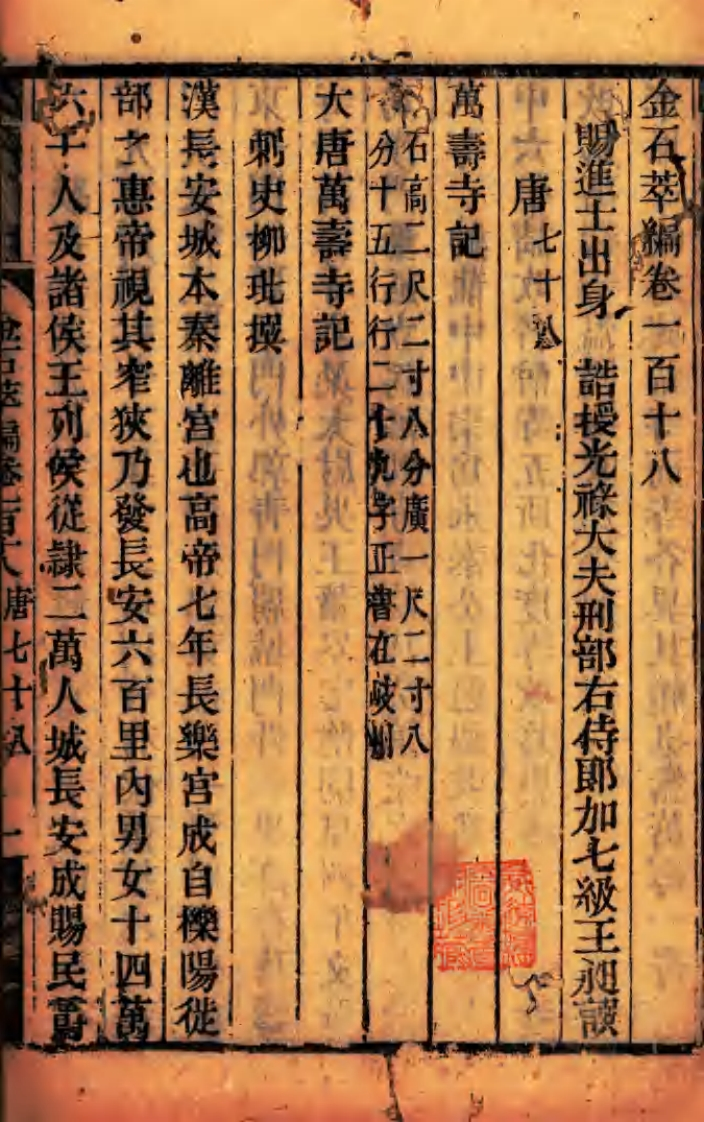 金石萃編卷一百十八
賜進士出身 誥授光祿大夫刑部右侍郎加七級王昶譔
唐七十八
萬壽寺記
石高二尺二寸八分廣一尺二寸八
分十五行行二十九字正書在岐州
大唐萬壽寺記
刺史柳玭撰
漢長安城本秦離宮也高帝七年長樂宮成自櫟陽徙
部之惠帝視其窄狹乃發長安六百里內男女十四萬
六千人及諸侯王列侯從隸二萬人城長安成賜民爵
金石萃編卷一百十八 唐七十八 一